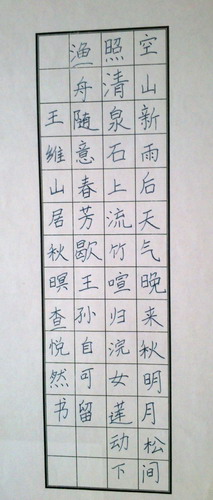 空山新雨后天气晚来秋明月松间
照清泉石上流竹喧归浣女莲动下
渔舟随意春芳歇王孙自可留
王维山居秋暝查悦然书